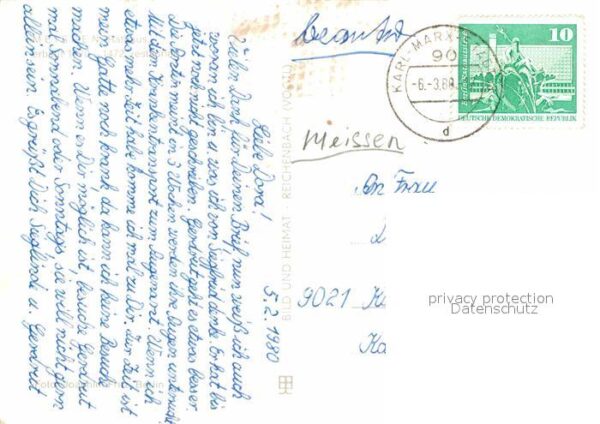 beantw
Meissen
KARL-MARX-STADT
90
-6.-3.80
d
10
DEUTSCHE DEMOKRATISCHE REPUBLIK
An Frau
9021 K
Ka
privacy protection
Datenschutz
BILD UND HEIMAT REICHENBACH
5.2.1980
Liebe Dora!
Vielen Dank für Deinen Brief, nun weiß ich auch
woran ich bin u. was ich von Siegfried denke. Er hat bis
jetzt noch nicht geschrieben. Gerhard geht es etwas besser.
Die Beaten muß in 3 Wochen werden ihre Augen untersucht
Mit Krankentransport zum Augenarzt. Wenn ich
etwas mehr Zeit habe komme ich mal zu Dir. Zur Zeit ist
mein Gatte noch krank, da kann ich keine Besuche
machen. Wenn es Dir möglich ist, besuche Gerhard
mal Sonnabend oder Sonntags, sie will nicht gern
allein sein. Es grüßt Dich Sieglinde u. Gerhard
Berlin